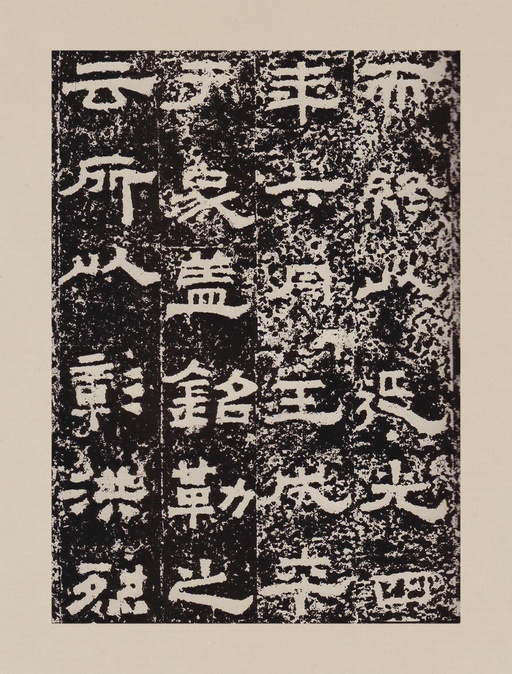 而終以延光四
年六月壬戌卒
于家盖銘勒之
云所以彰洪烈